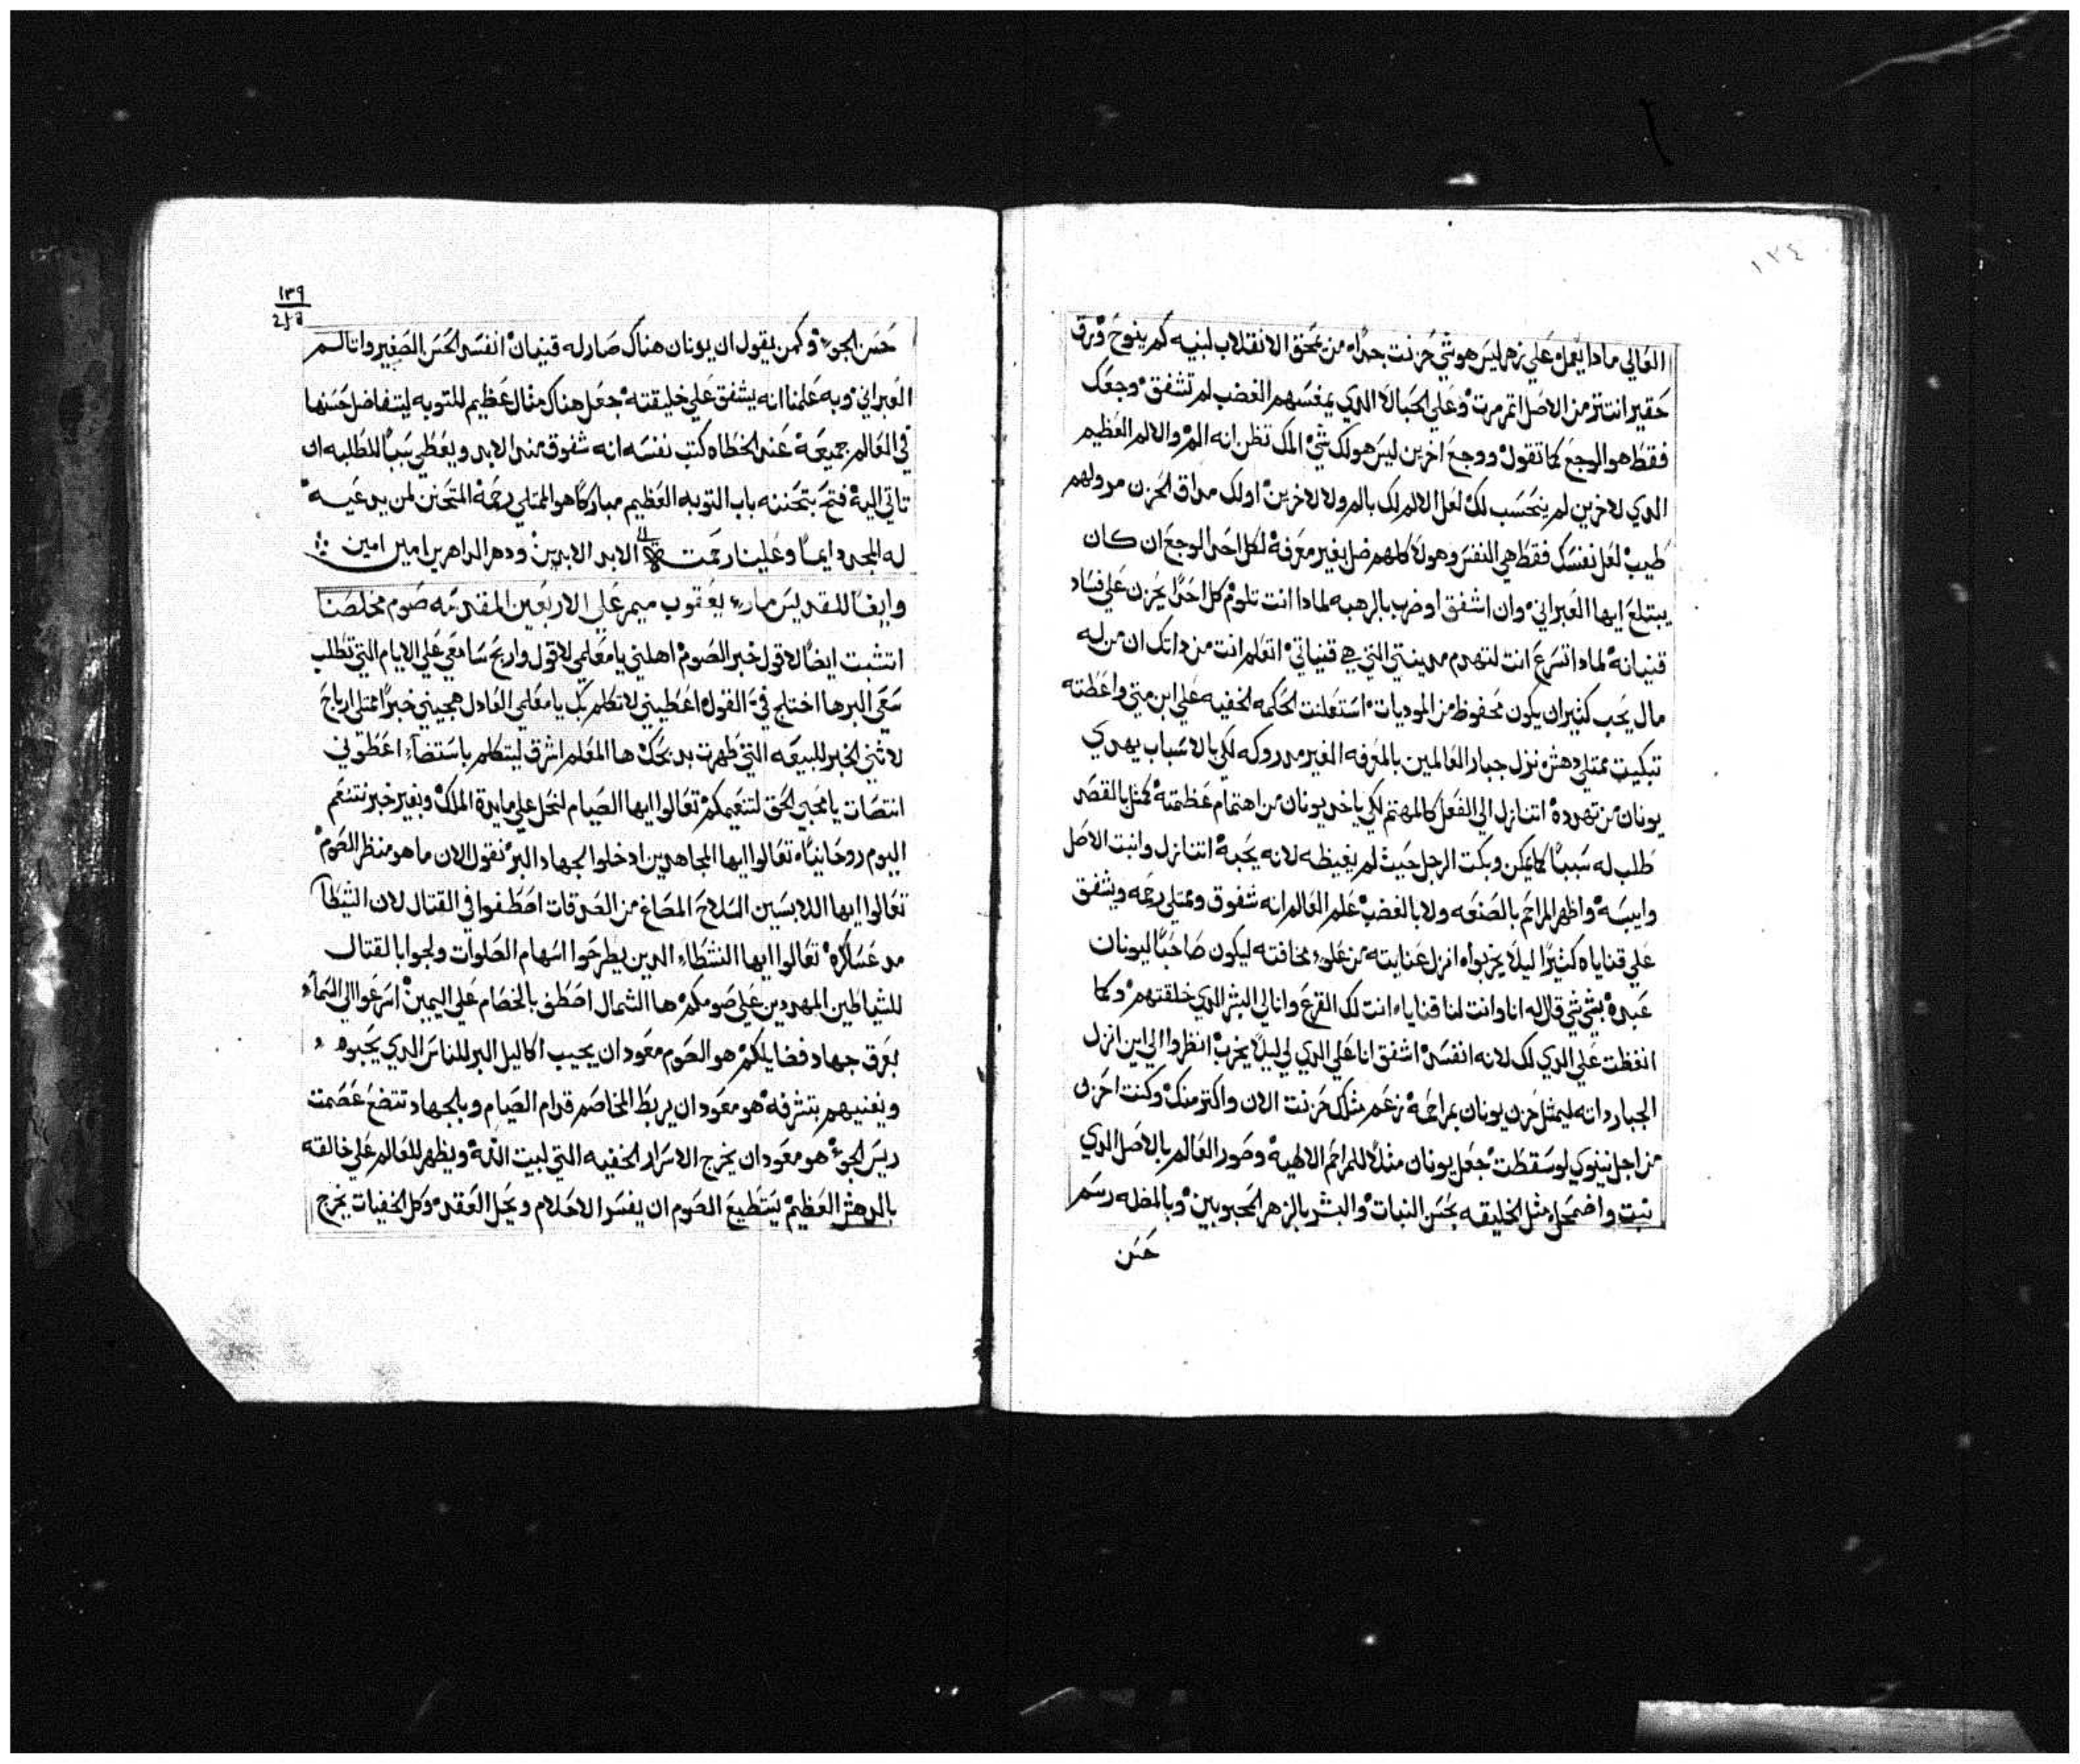 ١٣٤
العالي مادا يعمل علي زهر ليس هو شي حزنت جدا من يحق الانقلاب لبنيه كم ينوح ورق
حقير انت تز من الاصل اتمرمرت وعلي الجبالا الدي يمغسهم الغضب لم تشفق وجعك
فقط هو الوجع كما تقول ووجع اخرين ليس هو لك شي المك تظن انه الم والالم العظيم
الدي لاخرين لم يتحسب لك لعل الالم لك بالم ولا لاخرين اولك مداق الحزن مر ولهم
طيب لعل نفسك فقط هي النفس وهولا كلهم ضل بغير معرفة لكل احد الوجع ان كان
يبتلع ايها العبراني وان اشفق اوضرب بالرهبه لمادا انت تلوم كل احدا يحزن علي فساد
قنيانه لمادا تسرع انت لتهدم مدينتي التي هي قنياتي اتعلم انت من داتك ان من له
مال يحب كثير ان يكون محفوظ من الموديات استعلنت الحكمه الخفيه علي ابن متي واعطته
تبكيت ممتلي دهش نزل جبار العالمين بالمعرفه الغير مدروكه لكي بالاسباب يهدي
يونان من تهدده اتنازل الي الفعل كالمهتم لكي ياخد يونان من اهتمام عظمته كمثل بالقصد
طلب له سببا كما يمكن وبكت الرجل حيث لم يغيظه لانه يحبه اتنازل وانبت الاصل
وايبسه واظهر المراحم بالصنعه ولا بالغضب علم العالم انه شفوق وممتلي رحمه ويشفق
علي قناياه كثيرا ليلا يخربواه انزل عنايته من علو مخافته ليكون صاحبا ليونان
عبده بشي شي قال له انا وانت لنا قناياه انت لك القرع وانا لي البشر الدي خلقتهم وكما
اتغظت علي الدي لك لانه انفسد اشفق انا علي الدي لي ليلا يخرب انظروا الي اين انزل
الجبار داته ليمثل حزن يونان بمراحمه زعم مثلك حزنت الان واكتر منك وكنت احزن
من اجل نينوي لو سقطت جعل يونان مثلا للمراحم الالهيه وصور العالم بالاصل الدي
نبت واضمحل مثل الخليقه بحسن النبات والبشر بالزهر المحبوبين وبالمظله رسم
حسن
١٣٩
حسن الجو وكمن يقول ان يونان هناك صار له قنيان انفسد الحسن الصغير وانا لم
العبراني وبه علمنا انه يشفق علي خليقته جعل هناك مثال عظيم للتوبه ليتفاضل حسنها
في العالم جميعه عند الخطاه كتب نفسه انه شفوق مند الابد ويعطي سببا للطلبه ان
تاتي اليه فتح بتحننه باب التوبه العظيم مباركا هو الممتلي رحمة المتحنن لمن يدعيه
له المجد دايما وعلينا رحمته الي ابد الابدين ودهر الداهرين امين امين
وايضا للقديس مار يعقوب ميمر علي الاربعين المقدسه صوم مخلصنا
اتشبت ايضا لاقول خبر الصوم اهلني يا معلمي لاقول واربح سامعي علي الايام التي تطلب
سعي البر ها اختلج في القول اعطيني لاتكلم بك يا معلمي العادل هيجيني خبرا ممتلي ارباح
لاثني الخبر للبيعه التي طهرت بدبحك ها المعلم اشرق ليتكلم باستضا اعطوني
انتصات يا محبي الحق لتنعيمكم تعالوا ايها الصيام لنحل علي مايدة الملك وبغير خبز نتنعم
اليوم روحانيا تعالوا ايها المجاهدين ادخلوا لجهاد البر نقول الان ما هو منظر الصوم
تعالوا ايها اللابسين السلاح المصاغ من الصدقات اصطفوا في القتال لان الشيطا
مد عساكره تعالوا ايها النشطاء الدين يطرحوا اسهام الصلوات ولجوا بالقتال
للشياطين المهددين علي صومكم ها الشمال اصطف بالخصام علي اليمين اسرعوا الي السماء
بعرق جهاد فضايلكم هو الصوم معود ان يجيب اكاليل البر للناس الدي يحبوه
ويغنيهم بتشرفه هو معود ان يربط المخاصم قدام الصيام وبالجهاد تتضع عصمت
ريس الجو هو معود ان يخرج الاسرار الخفيه التي لبيت الله ويظهر للعالم علي خالقه
بالدهش العظيم يستطيع الصوم ان يفسر الاحلام ويحل العقد وكل الخفيات يخرج